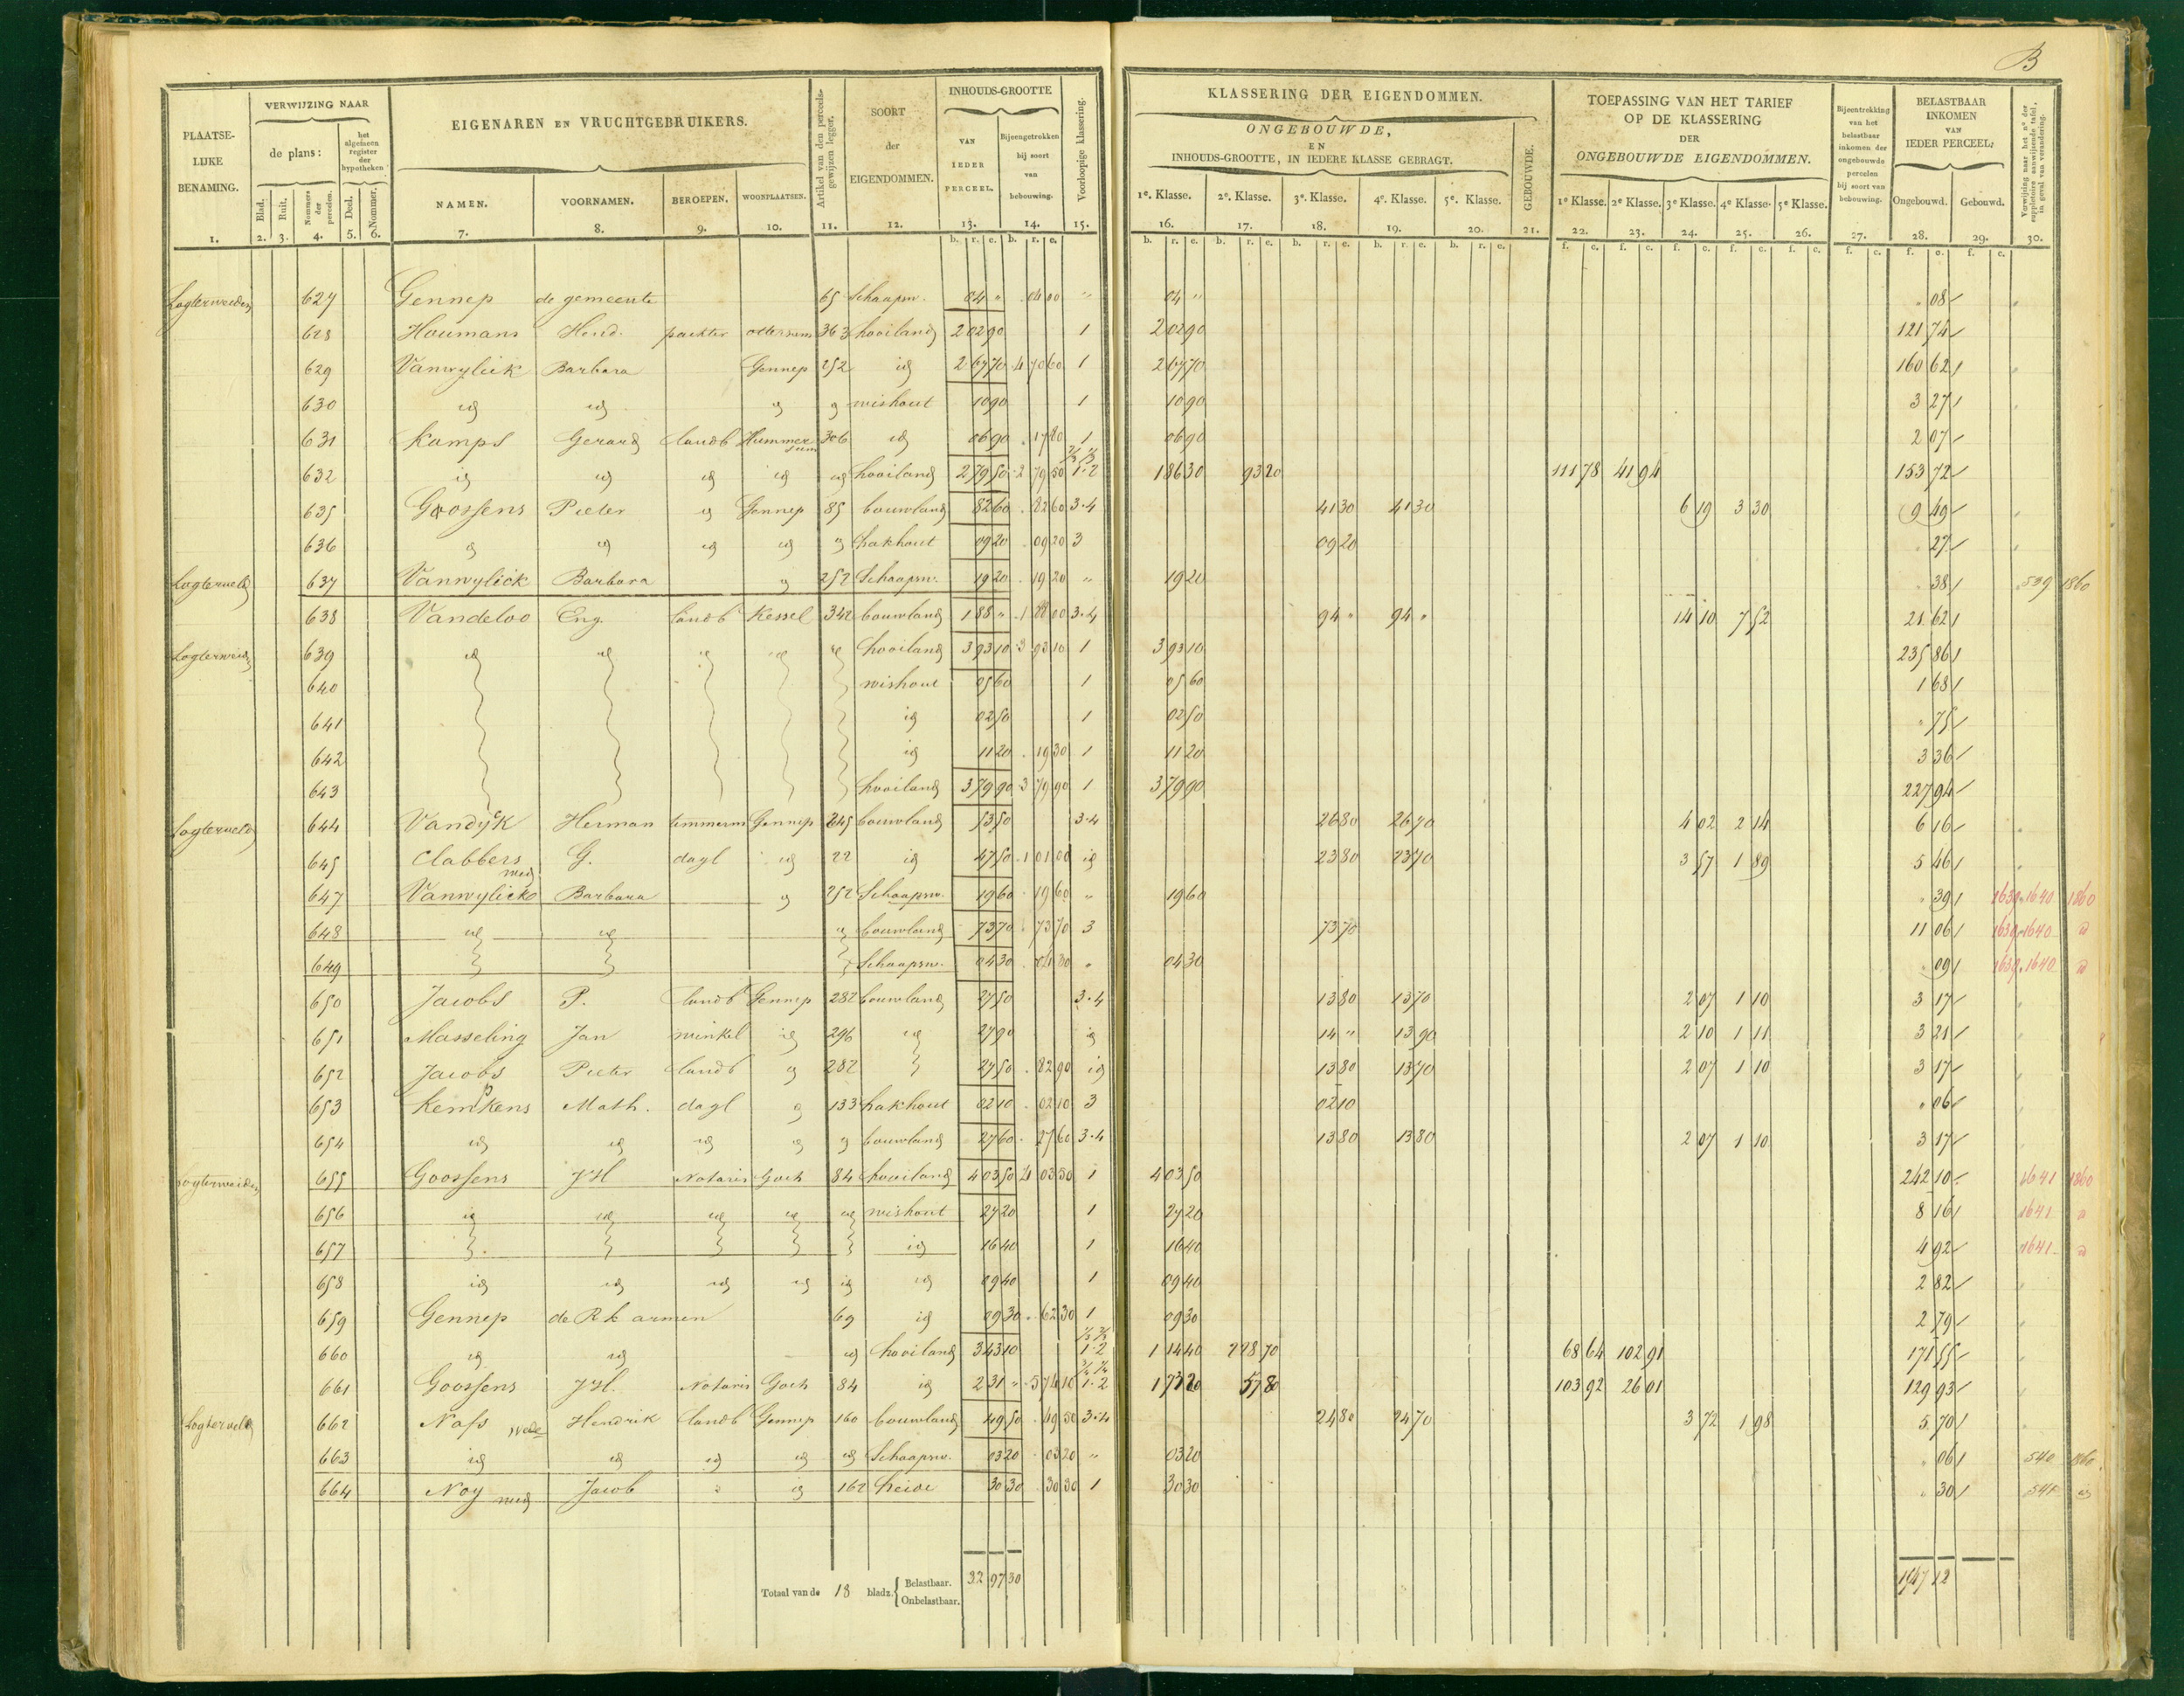 B
PLAATSELIJKE BENAMING.
VERWIJZING NAAR
de plans:
het algemeen register der hypotheken
Blad. Ruit. Nommers der perceelen. Deel. Nommer.
EIGENAREN EN VRUCHTGEBRUIKERS.
NAMEN. VOORNAMEN. BEROEPEN. WOONPLAATSEN.
Artikel van den perceelsgewijzen legger.
SOORT der EIGENDOMMEN.
INHOUDS-GROOTTE
VAN IEDER PERCEEL.
Bijeengetrokken bij soort van bebouwing.
Voorloopige klassering.
KLASSERING DER EIGENDOMMEN.
ONGEBOUWDE,
EN
INHOUDS-GROOTTE, IN IEDERE KLASSE GEBRAGT.
GEBOUWDE.
1e. Klasse. 2e. Klasse. 3e. Klasse. 4e. Klasse. 5e. Klasse.
TOEPASSING VAN HET TARIEF
OP DE KLASSERING
DER
ONGEBOUWDE EIGENDOMMEN.
1e Klasse. 2e Klasse. 3e Klasse. 4e Klasse. 5e Klasse.
Bijeentrekking van het belastbaar inkomen der ongebouwde percelen bij soort van bebouwing.
BELASTBAAR INKOMEN VAN IEDER PERCEEL.
Ongebouwd. Gebouwd.
Verwijzing naar het no. der suppletoire aanwijzende tafel, in geval van verandering.
1. 2. 3. 4. 5. 6. 7. 8. 9. 10. 11. 12. 13. 14. 15. 16. 17. 18. 19. 20. 21. 22. 23. 24. 25. 26. 27. 28. 29. 30.
b. r. e. b. r. e. b. r. e. b. r. e. b. r. e. b. r. e. b. r. e. f. c. f. c. f. c. f. c. f. c. f. c. f. c. f. c.
Logterweiden 627 Gennep de gemeente 65 Schaapsw. 04 " 04 00 " 04 " 08
628 Houmans Hend. pachter ottersum 363 hooiland 2 02 90 1 2 02 90 121 74
629 Vanwylick Barbara Gennep 252 id 2 67 70 4 70 60 1 2 67 70 160 62
630 id id id id wishout 10 90 1 10 90 3 27
631 Kamps Gerard landb Hummersum 306 id 06 90 17 80 1 06 90 2 07
632 id id id id id hooiland 2 79 50 2 79 50 2/3 1/3 1-2 1 86 30 93 20 111 78 41 94 153 72
635 Goossens Pieter id Gennep 85 bouwland 82 60 82 60 3-4 41 30 41 30 6 19 3 30 9 49
636 id id id id id hakhout 09 20 09 20 3 09 20 27
Logterveld 637 Vanwylick Barbara id 252 Schaapsw. 19 20 19 20 " 19 20 38 539 1860
638 Vandeloo Eng. landb Kessel 342 bouwland 1 88 " 1 88 00 3-4 94 " 94 " 14 10 7 52 21 62
Logterweid 639 id id id id id hooiland 3 93 10 3 93 10 1 3 93 10 235 86
640 wishout 05 60 1 05 60 1 68
641 id 02 50 1 02 50 75
642 id 11 20 19 30 1 11 20 3 36
643 hooiland 3 79 90 3 79 90 1 3 79 90 227 94
Logterveld 644 Vandyck Herman timmerm Gennep 245 bouwland 53 50 3-4 26 80 26 70 4 02 2 14 6 16
645 Clabbers wed G. dagl id 22 id 47 50 1 01 00 id 23 80 23 70 3 57 1 89 5 46
647 Vanwylick Barbara id 252 Schaapsw. 19 60 19 60 " 19 60 39 1639.1640 1860
648 id id id bouwland 73 70 73 70 3 73 70 11 06 1639.1640 id
649 Schaapsw. 04 30 04 30 " 04 30 09 1639.1640 id
650 Jacobs P. landb Gennep 282 bouwland 27 50 3-4 13 80 13 70 2 07 1 10 3 17
651 Masseling Jan winkel id 296 id 27 90 id 14 " 13 90 2 10 1 11 3 21
652 Jacobs Pieter landb id 282 27 50 82 90 id 13 80 13 70 2 07 1 10 3 17
653 Kempkens Math. dagl id 133 hakhout 02 10 02 10 3 02 10 06
654 id id id id id bouwland 27 60 27 60 3-4 13 80 13 80 2 07 1 10 3 17
Logterweiden 655 Goossens Goch Notaris 84 hooiland 4 03 50 4 03 50 1 4 03 50 242 10 1641 1860
656 id id id id id wishout 27 20 1 27 20 8 16 1641 id
657 id 16 40 1 16 40 4 92 1641 id
658 id id id id id id 09 40 1 09 40 2 82
659 Gennep de R k armen 69 id 09 30 62 30 1 09 30 2 79
660 id id id hooiland 3 43 10 1/3 2/3 1-2 1 14 40 2 28 70 68 64 102 91 171 55
661 Goossens Notaris Goch 84 id 2 31 " 5 74 10 3/4 1/4 1-2 1 73 20 57 80 103 92 26 01 129 93
Logterveld 662 Nass wede Hendrik landb Gennep 160 bouwland 49 50 49 50 3-4 24 80 24 70 3 72 1 98 5 70
663 id id id id id Schaapsw. 03 20 03 20 " 03 20 06 540 1860
664 Noy wed Jacob id 162 heide 30 30 30 30 1 30 30 30 541 id
Totaal van de 18 bladz. Belastbaar. 32 97 30 1947 12
Onbelastbaar.